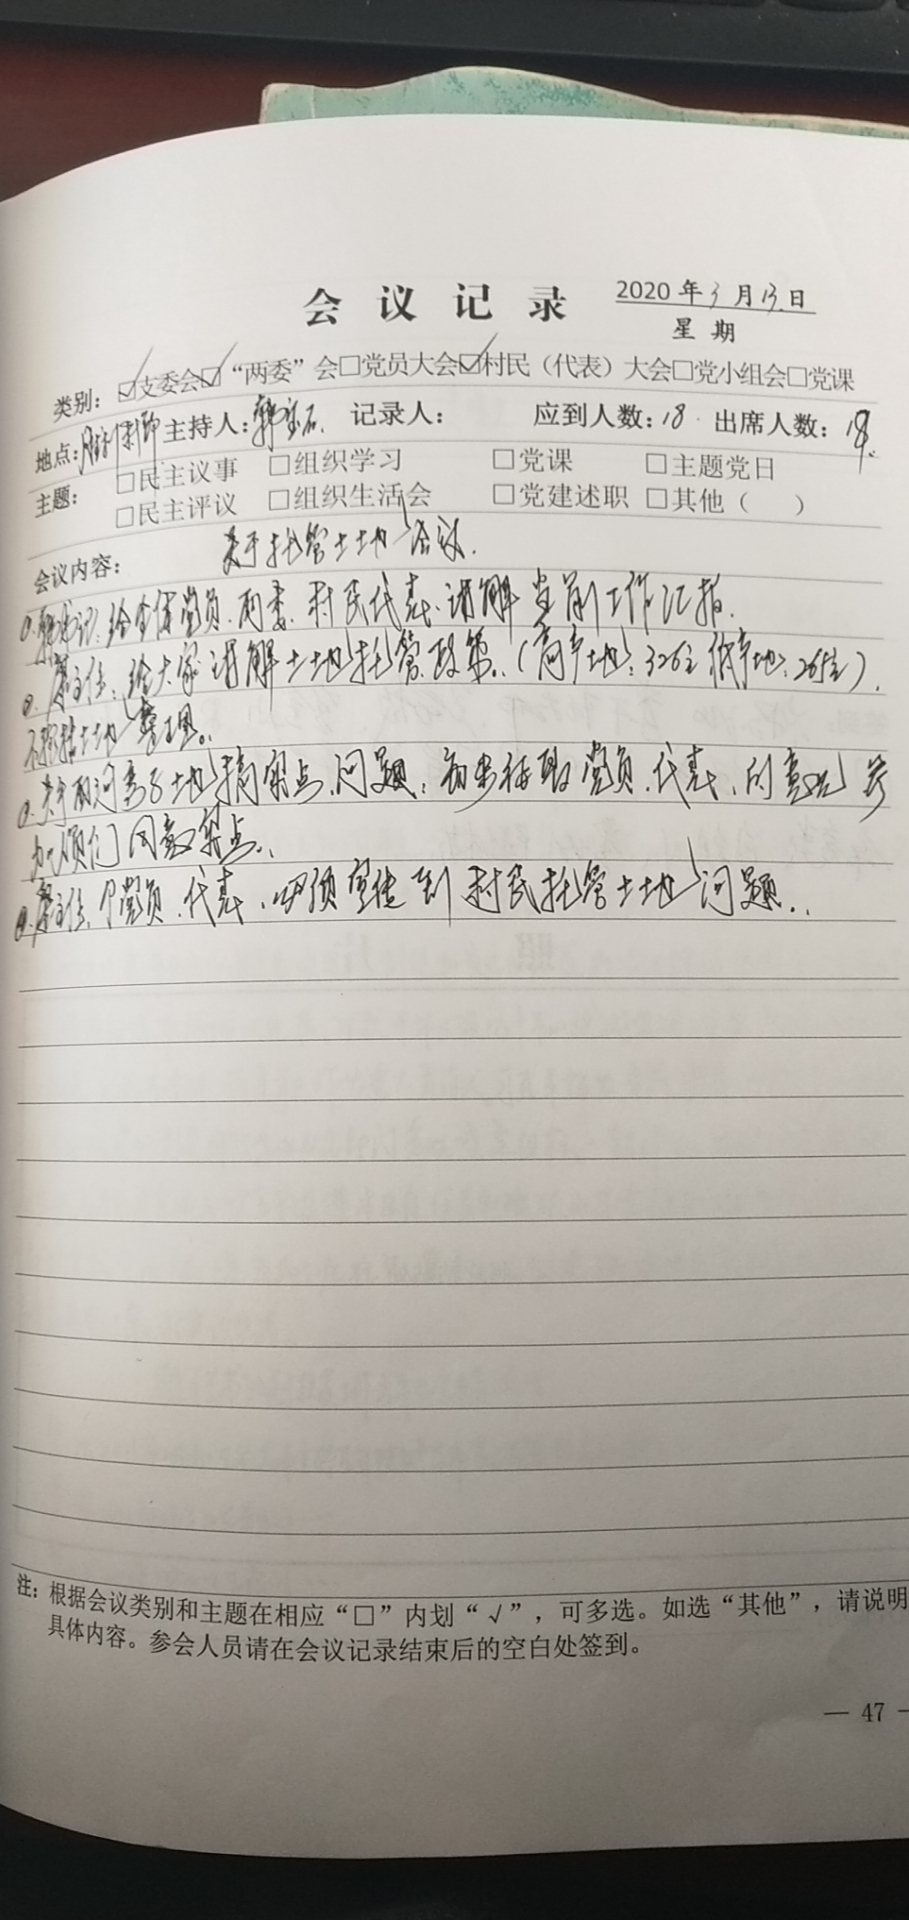 会议记录 2020年3月13日
星期
类别：☑支委会☑“两委”会□党员大会☑村民（代表）大会□党小组会□党课
地点： 主持人：韩宝石 记录人： 应到人数：18 出席人数：18
主题： □民主议事 □组织学习 □党课 □主题党日
□民主评议 □组织生活会 □党建述职 □其他（ ）
会议内容： 关于托管土地会议.
①.韩书记：给全体党员、两委、村民代表、讲解当前工作汇报.
②. 主任：给大家讲解土地托管政策。（高产地：326 低产地：265 ）.
不包括土地整理。
③. 土地搞 点问题，初步征取党员、代表、的意见
们同意 点。
④. 主任、党员、代表、 宣传到村民托管土地问题.
注：根据会议类别和主题在相应“□”内划“√”，可多选。如选“其他”，请说明
具体内容。参会人员请在会议记录结束后的空白处签到。
— 47 —